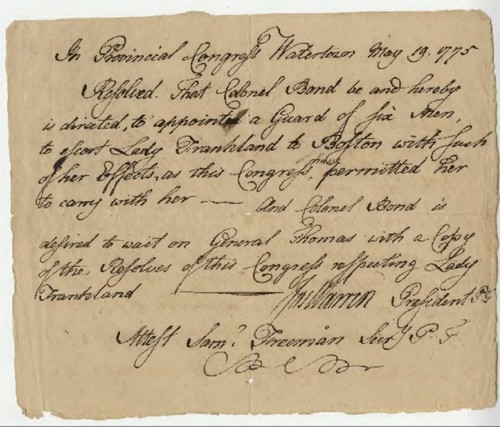 In Provincial Congress Watertown May 19. 1775
Resolved. That Colonel Bond be and hereby
is directed, to appointed a Guard of six Men,
to escort Lady Frankland to Boston with such
of her Effects, as this Congress permitted her
to carry with her — And Colonel Bond is
desired to wait on General Thomas with a Copy
of the Resolves of this Congress respecting Lady
Frankland — Jos Warren President P.
Attest Saml. Freeman Secry P. C